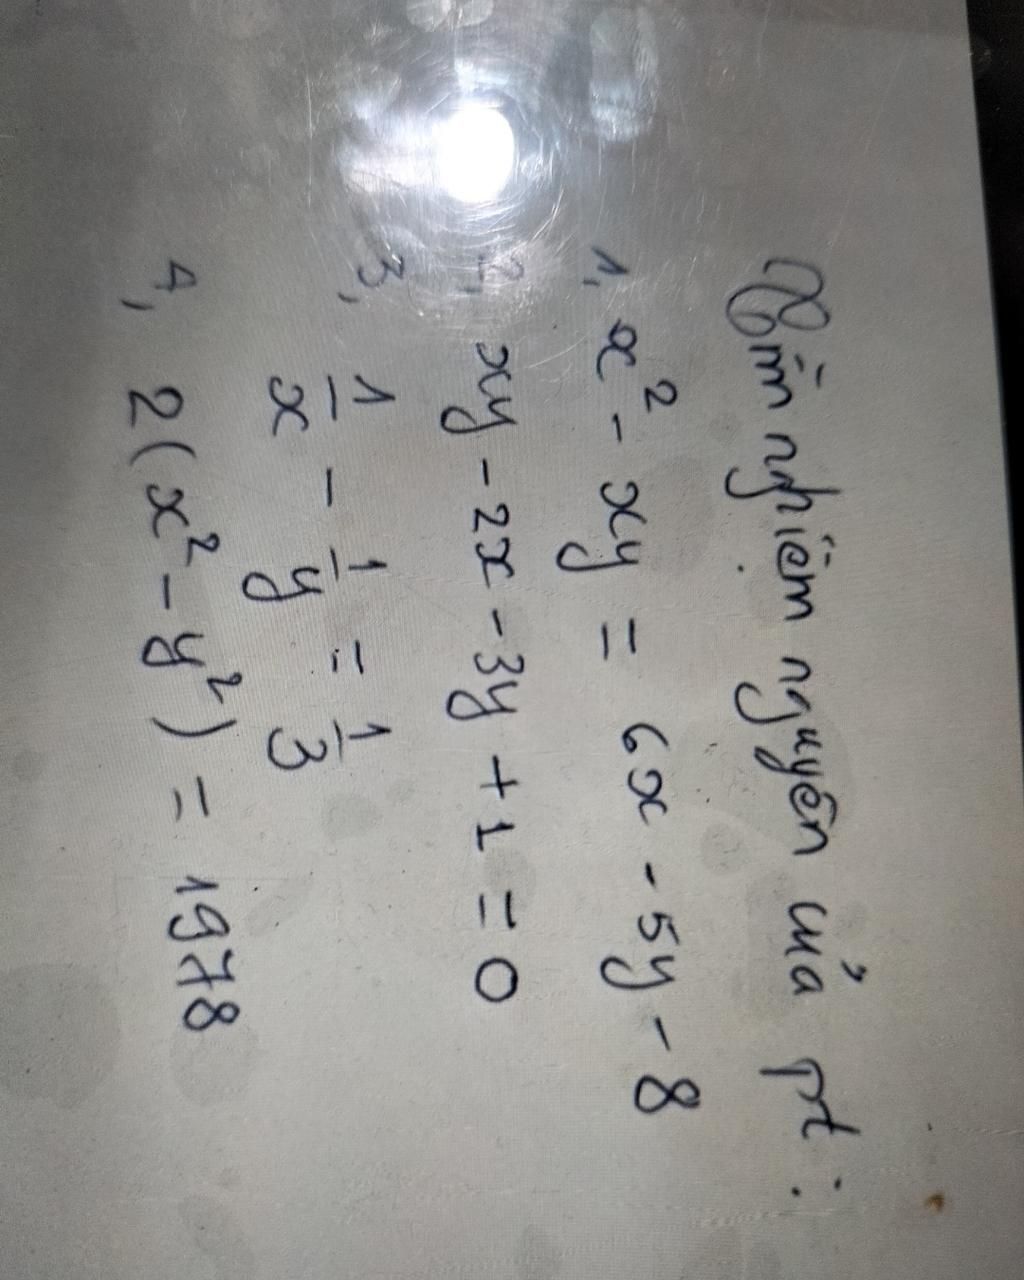 Tìm nghiệm nguyên của pt :
1, x² - xy = 6x - 5y - 8
2, xy - 2x - 3y + 1 = 0
3, 1/x - 1/y = 1/3
4, 2(x² - y²) = 1978